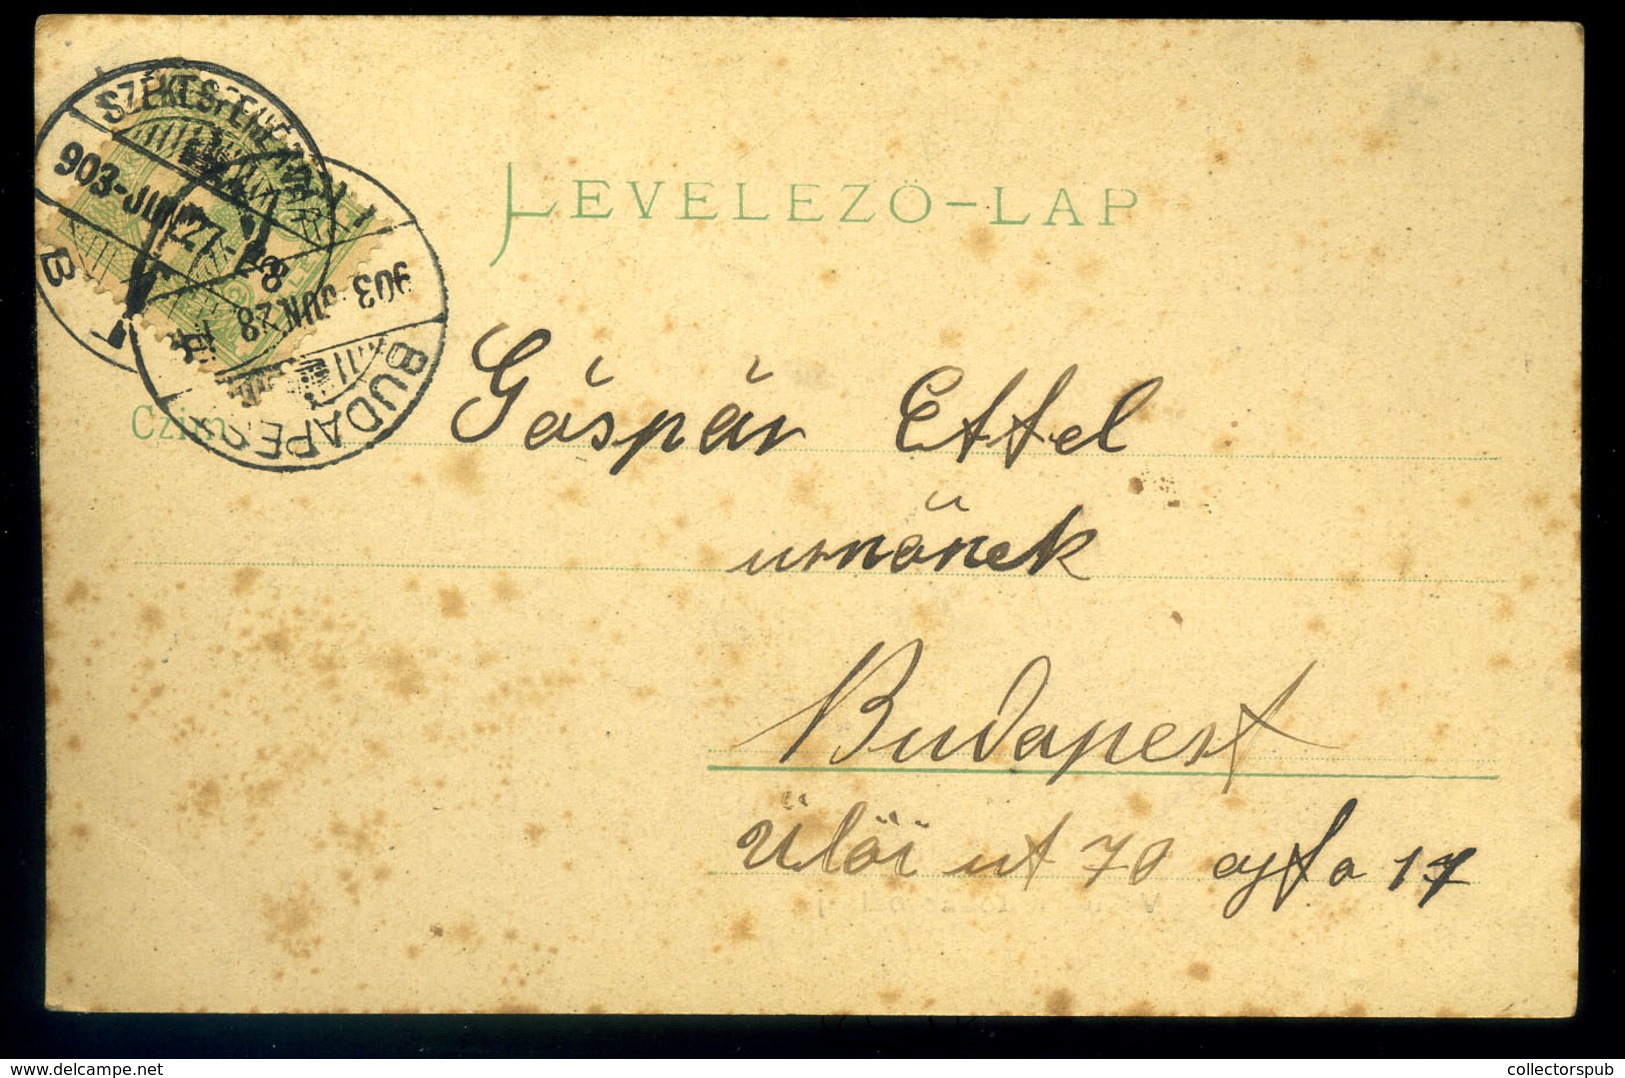 LEVELEZŐ-LAP
SZÉKESFEHÉRVÁR
903-JUN 27-
B
903 JUN. 28
BUDAPEST
Czim
Gáspár Ettel
urnőnek
Budapest
Ülői ut 70 ajto 17
www.delcampe.net
collectorspub